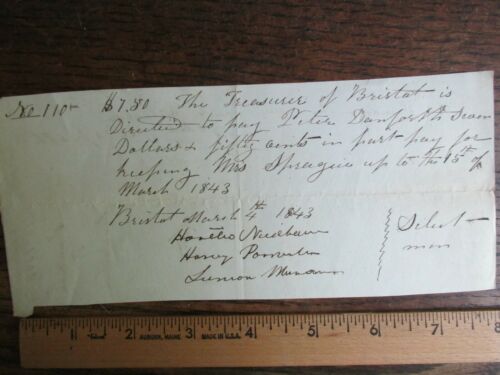 No 110 $7.50 The Treasurer of Bristol is
Directed to pay Peter Danforth Seven
Dollars & fifty cents in part pay for
keeping Mrs Sprague up to the 15th of
March 1843
Bristol March 4th 1843
Horatio Needham
Harvey
Select
men
1 2 3 4 5 6 7 8
AUBURN, MAINE MADE IN U.S.A.